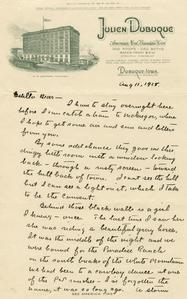 Julien Dubuque
Dubuque, Iowa.
Aug 11, 1918.
Hello Dear — I have to stay overnight here
before I can catch a train to Chicago, where
I hope to get some air and sun and letters
from you.
By some odd chance they gave me this
dingy little room with a window looking
back — through a rusty screen — toward
the hill back of town. I can't see the hill
but I can see a light on it, which I take
to be the Convent.
Behind those black walls is a girl
I knew — once. The last time I saw her
she was riding a beautiful gray horse.
It was the middle of the night and we
were bound for the Paradise Ranch
on the south breaks of the White Mountains
we had been to a cowboy dance at one
of the — I've forgotten the
name, it was so long ago. A storm
SEE AMERICA FIRST